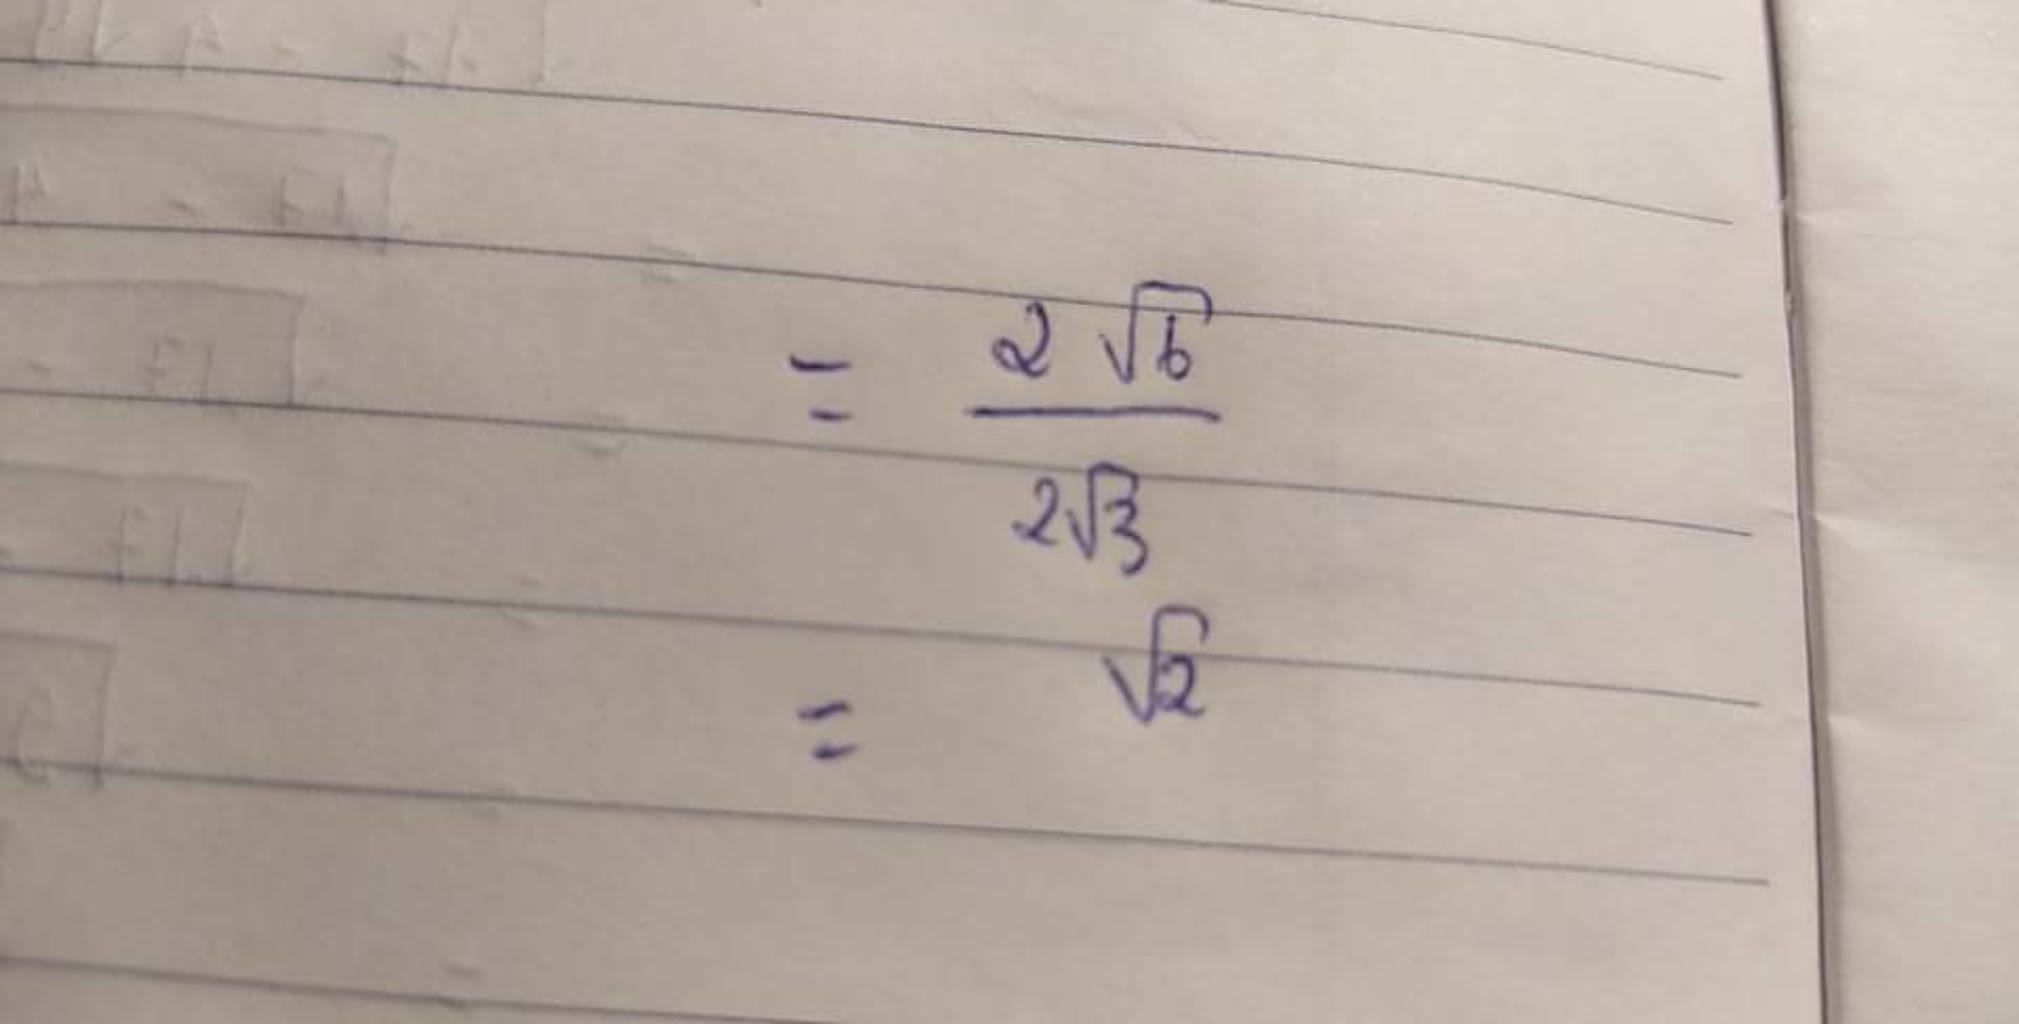 = 2 √6 / 2√3
= √2